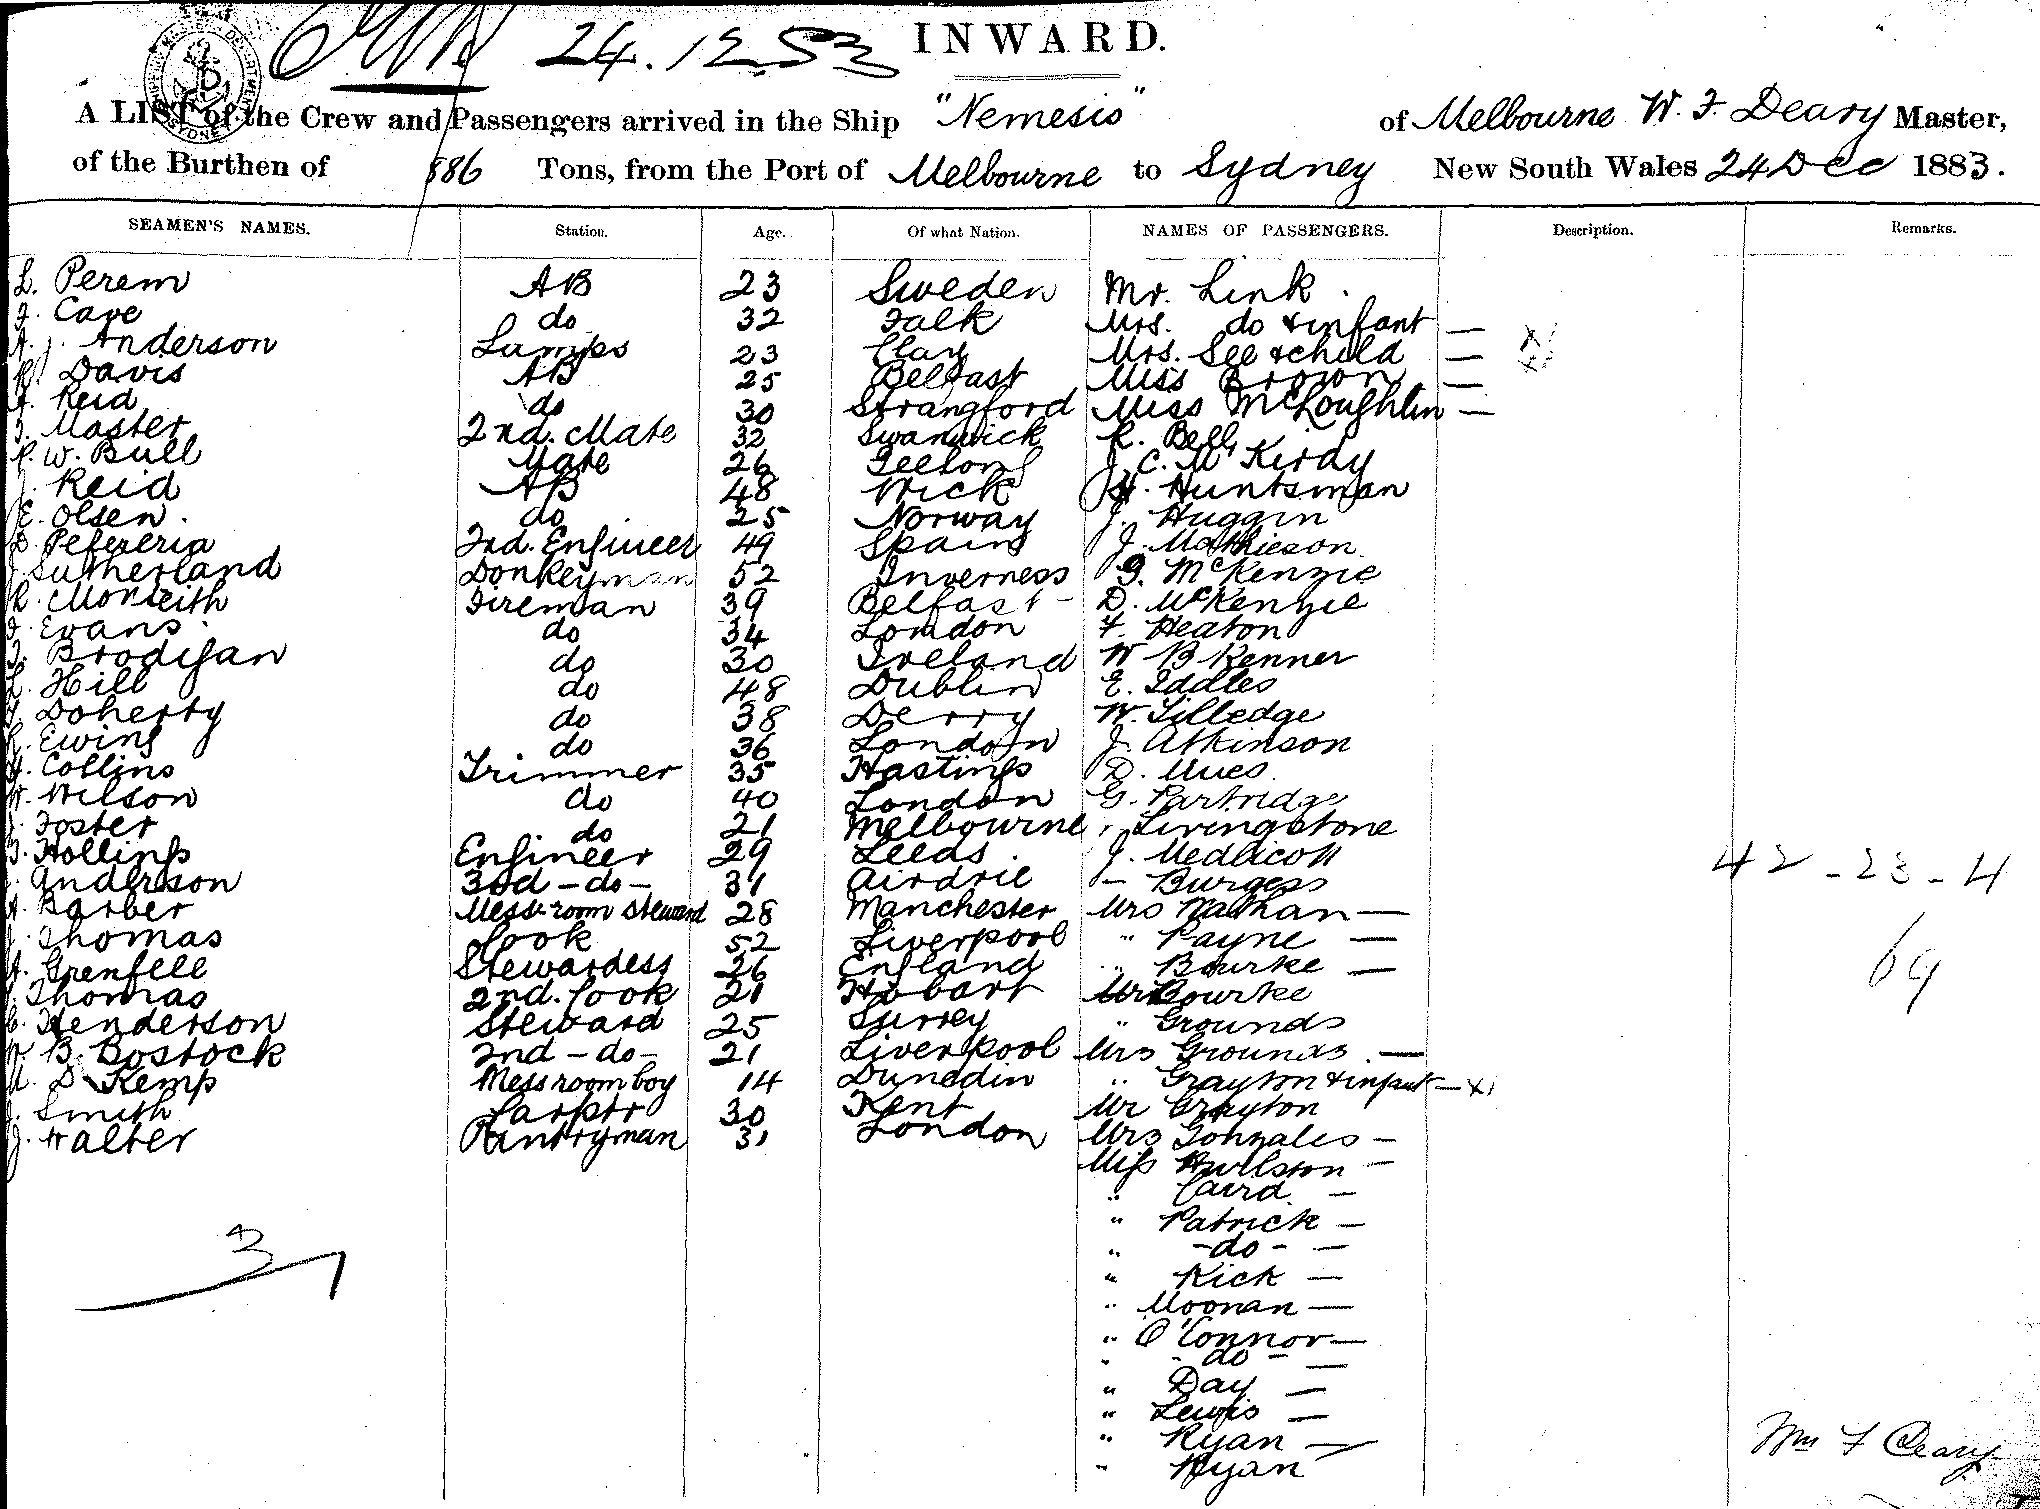 24.12.83 INWARD.
A LIST of the Crew and Passengers arrived in the Ship "Nemesis" of Melbourne W. F. Deary Master,
of the Burthen of 886 Tons, from the Port of Melbourne to Sydney New South Wales 24 Dec 1883.
SEAMEN'S NAMES. Station. Age. Of what Nation. NAMES OF PASSENGERS. Description. Remarks.
L. Perem AB 23 Sweden Mr. Link.
J. Cave do 32 Falk Mrs. do & infant —
A. J. Anderson Lamps 23 Clay Mrs. See & child —
Davis AB 25 Belfast Miss Brown —
Reid do 30 Strangford Miss McLoughlin —
Master 2nd. Mate 32 Swanwick R. Bell
W. Bull Mate 26 J. C. McKirdy
Reid AB 48 Wick H. Huntsman
E. Olsen. do 25 Norway J. Huggin
2nd. Engineer 49 Spain J. Mathieson
Sutherland Donkeyman 52 Inverness G. McKenzie
R. Monteith Fireman 39 Belfast - D. McKenzie
Evans do 34 London F. Heaton
Brodigan do 30 Ireland W B Kenner
Hill do 48 Dublin E. Iddles
Doherty do 38 Derry W. Tilledge
Ewing do 36 London J. Atkinson
Collins Trimmer 35 Hastings D. Mues
W. Wilson do 40 London G. Partridge
Foster do 21 Melbourne Livingstone
Hollings Engineer 29 Leeds J. Medlicott
Anderson 3rd - do - 31 Airdrie - Burgess 42 - 23 - 4
Barber Mess-room steward 28 Manchester Mrs Nathan —
Thomas Cook 52 Liverpool " Payne —
Grenfell Stewardess 26 England " Bourke — 69
Thomas 2nd. Cook 21 Hobart Mr Bourke
Henderson Steward 25 Surrey " Grounds
B. Bostock 2nd - do - 21 Liverpool Mrs Grounds —
D Kemp Mess room boy 14 Dunedin " Grayton & infant —
J. Smith 30 Kent Mr Grayton
J. Walter Pantryman 31 London Mrs Gonzales —
Miss Hurlston —
" Caird —
" Patrick —
" - do - —
" Kick —
" Moonan —
" O'Connor —
" - do - —
" Day —
" Lewis —
" Ryan —
" Ryan
Wm F Deary